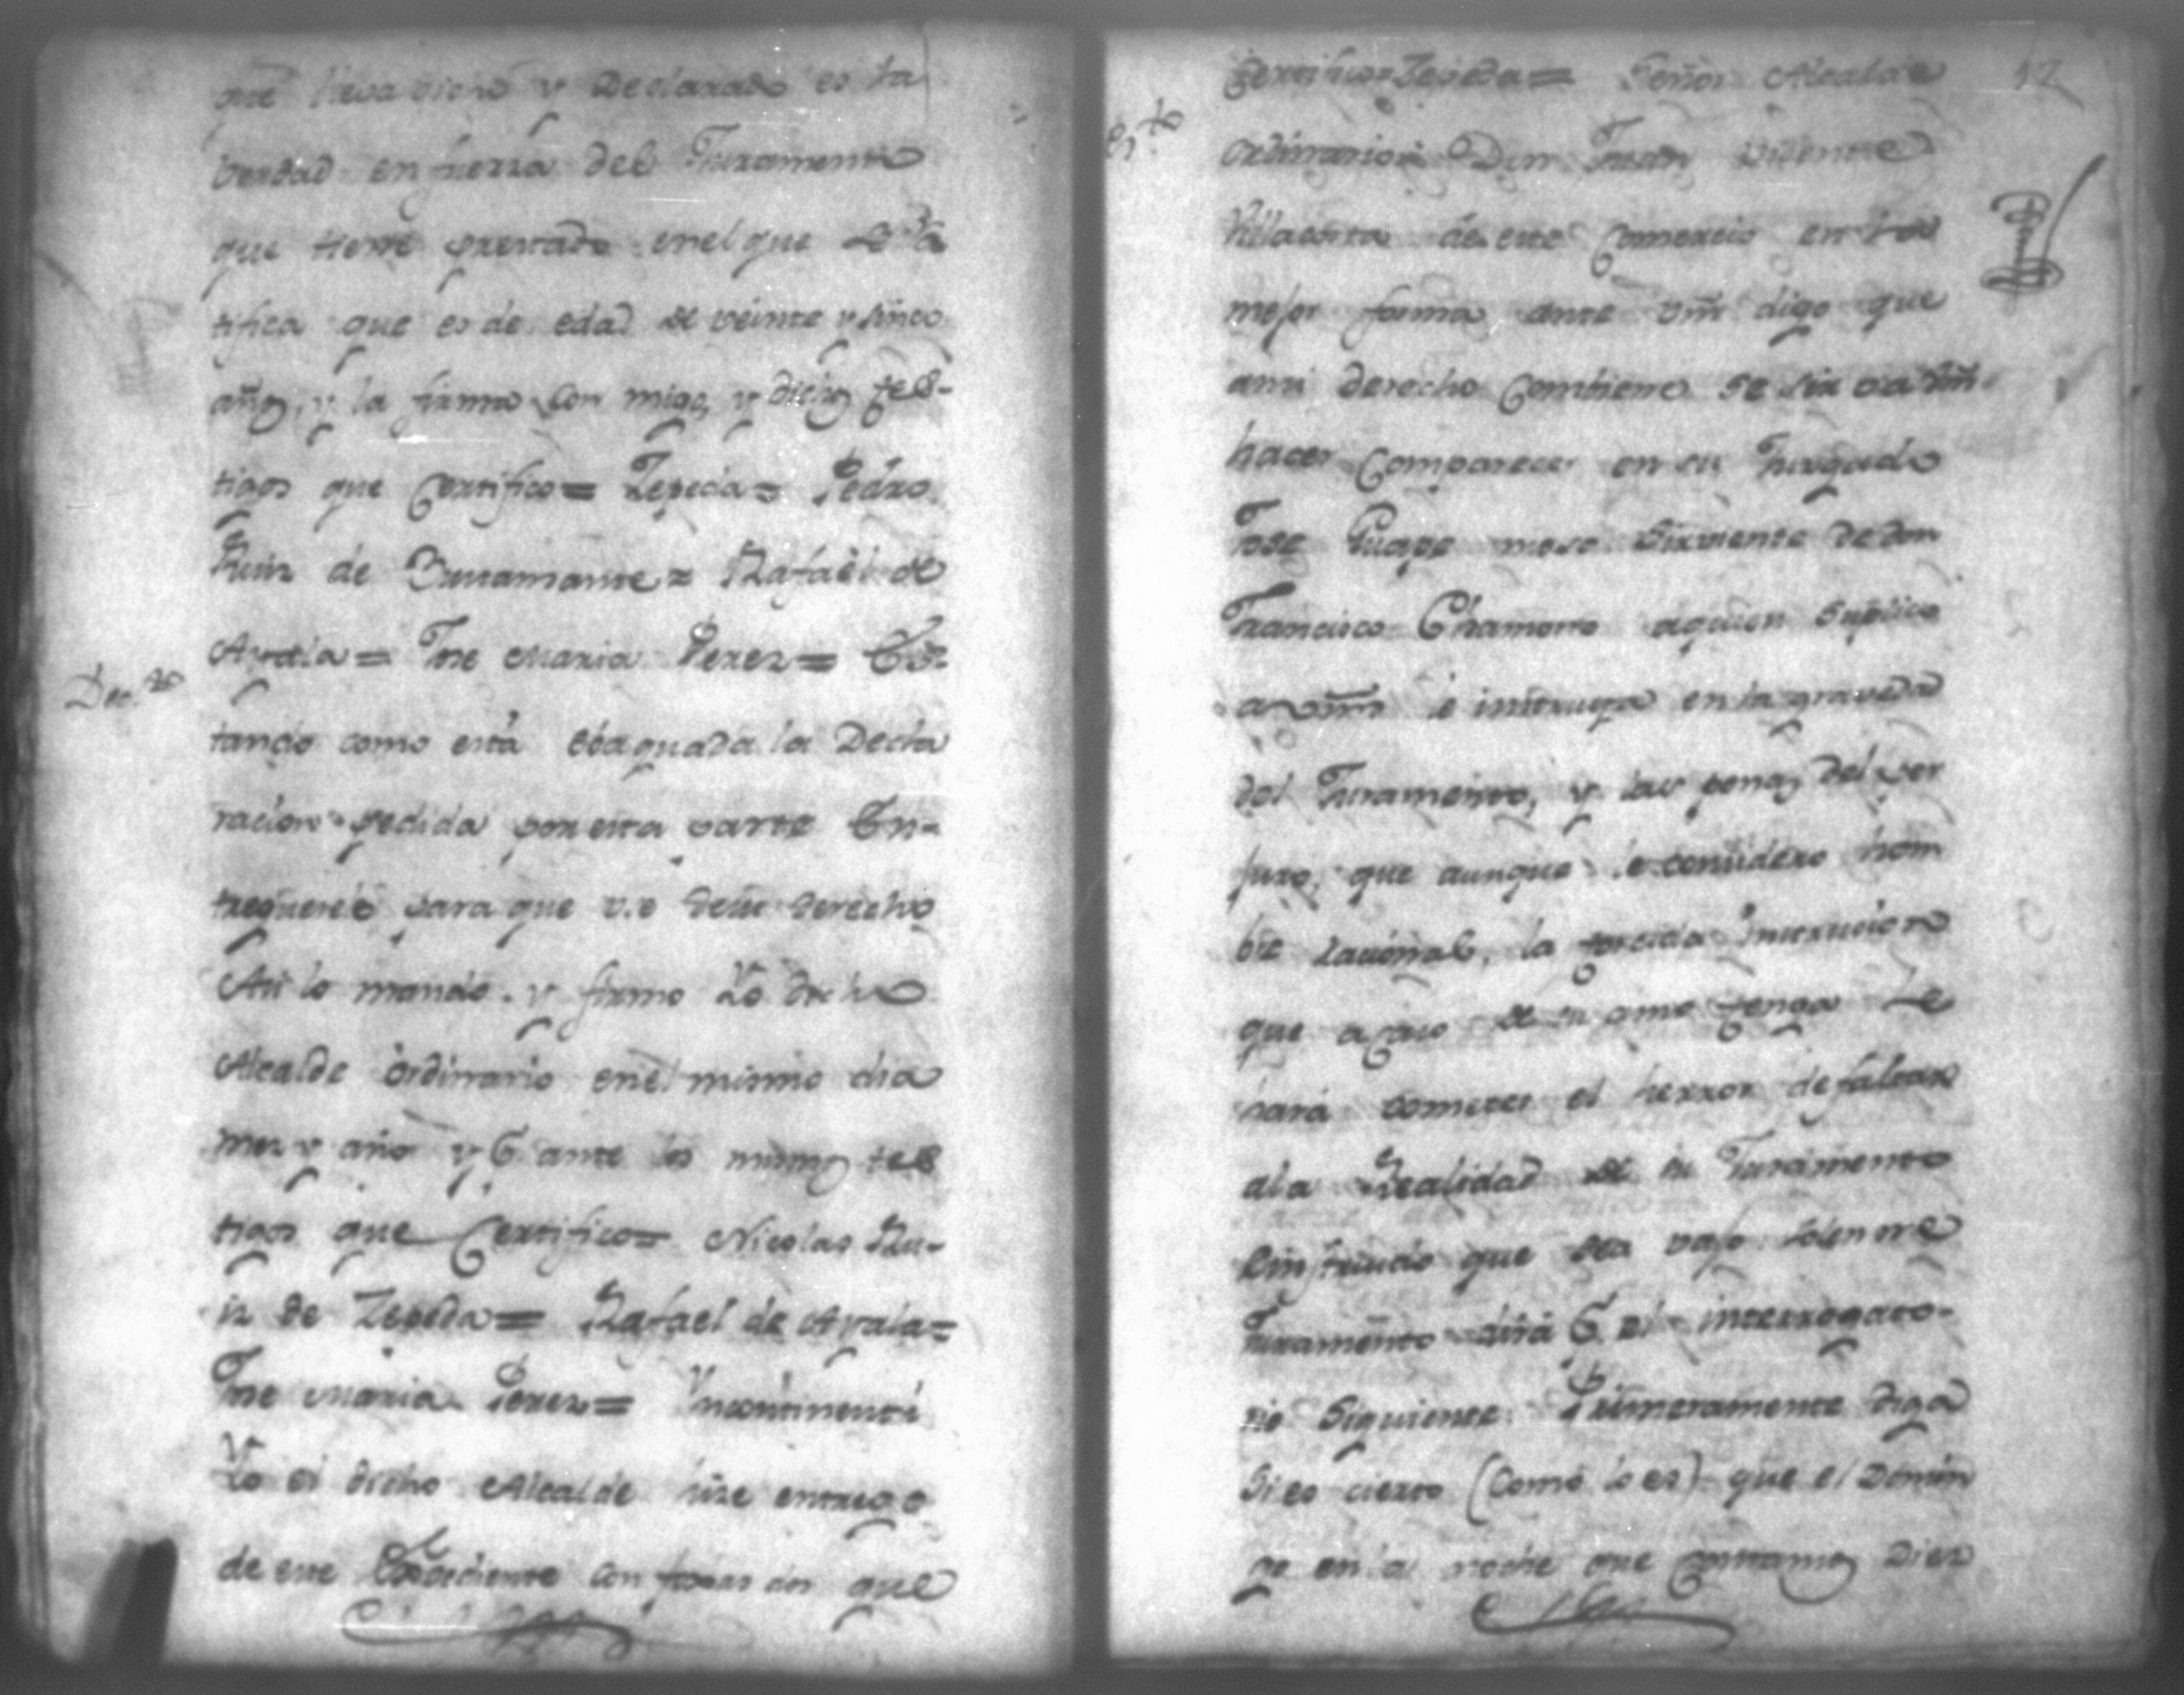 que lleva dicho y Declarado es la
verdad en fuerza del Juramento
que tiene prestado en el que Se Ra
tifica que es de edad de veinte y sinco
años, y la firmo con migo, y dichos tes-
tigos que Certifico = Zepeda = Pedro
Ruiz de Bustamante = Rafael de
Ayala = Jose Maria Perez = Es-
Dec.to
tando como está ebaquada la Decla
racion pedida por esta parte En-
treguesele para que use de su derecho
Asi lo mando y firmo Yo dicho
Alcalde ordinario en el mismo dia
mes y año y ante los mismos tes
tigos que Certifico = Nicolas Ru-
iz de Zepeda = Rafael de Ayala =
Jose Maria Perez = Yncontinenti
Yo el dicho Alcalde hise entrego
de este Expediente con fojas dos que
12
Certifico = Zepeda = Señor Alcalde
Es.to
ordinario = Don Juan Vicente
Villacorta de este Comercio en la
mejor forma ante vm̃ digo que
ami derecho Combiene se sirva vm̃
hacer Comparecer en su Jusgado
Jose Quispe moso Sirviente de don
Francisco Chamorro aquien Suplico
a vm̃ le instruya en la gravedad
del Juramento, y las penas del per
juro, que aunque le considero hom
bre racional, la torcida instrucion
que acaso de su amo tenga Le
hará cometer el herror de faltar
ala Realidad de su Juramento
Instruido que sea vajo solemne
Juramento dirá el interrogato-
rio Siguiente. Primeramente diga
Si es cierto (como lo es) que el Domin
go en la noche que Contamos Diez